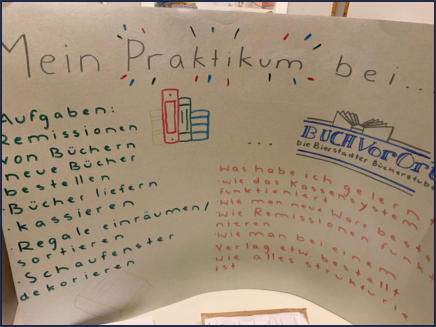 Mein Praktikum bei...
Aufgaben:
Remissionen
von Büchern
neue Bücher
bestellen
·Bücher liefern
·kassieren
·Regale einräumen/
sortieren
·Schaufenster
dekorieren
...
BUCHVorOrt
Die Bierstadter Bücherstube
Was habe ich gelernt
·wie das Kassensystem
funktioniert
·Wie man neue Ware
·Wie Remissionen
nieren
·Wie man bei einem
Verlag etw. bestellt
·Wie alles
ist